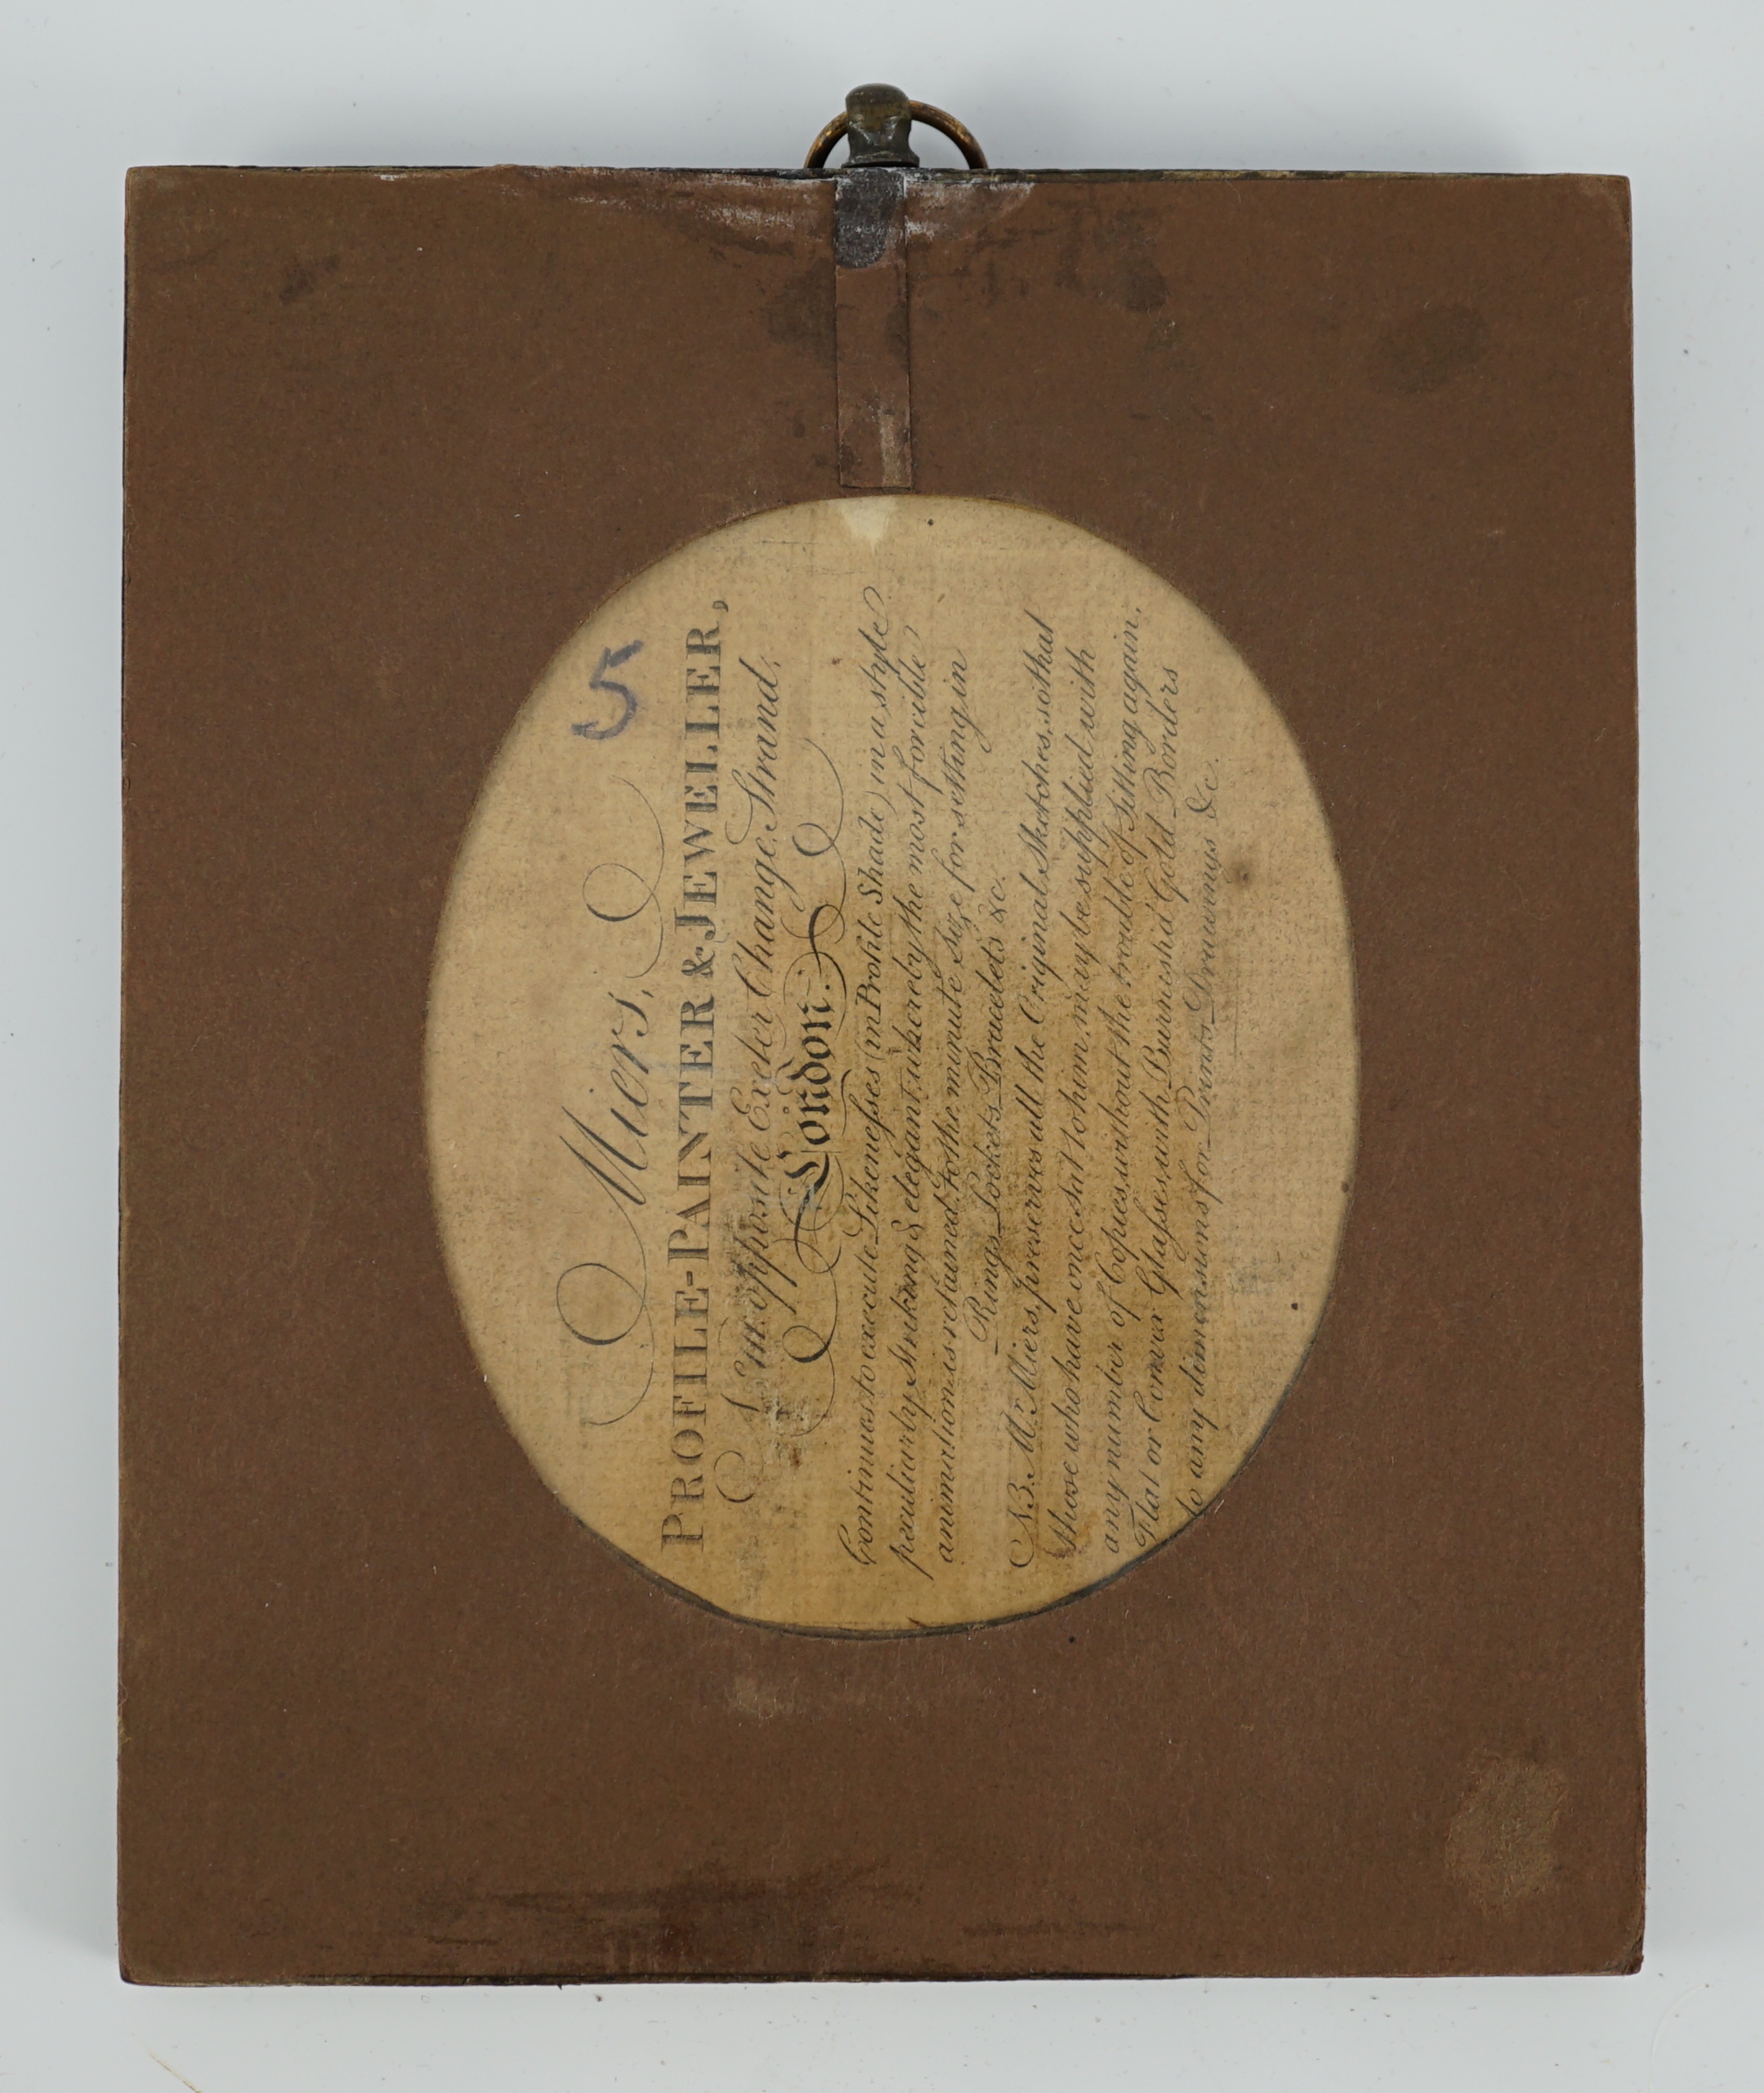 5
Miers,
PROFILE-PAINTER & JEWELLER,
opposite Exeter Change, Strand,
London.
Continues to execute Likeneſses (in Profile Shade) in a style
peculiarly Striking & elegant, whereby the most forcible
animation is retained, to the minute size for setting in
Rings, Lockets, Bracelets &c.
N.B. Mr. Miers preserves all the Original Sketches, so that
those who have once sat to him, may be supplied with
any number of Copies without the trouble of Sitting again.
Flat or Convex Glaſses, with Burnish'd Gold Borders
to any dimensions for Prints, Drawings &c.